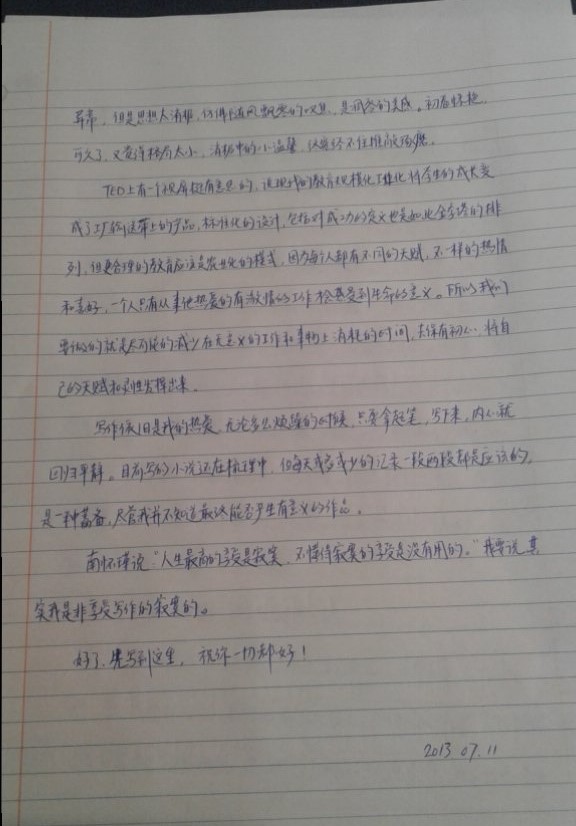 异常，但是思想太消极，仿佛随风飘零的叹息，是颓唐的美感。初看惊艳，
可久了，又觉得格局太小，消极中的小温馨，
TED上有一个视屏挺有意思的，说现代的教育规模化工业化将学生的成长变
成了工厂输送带上的产品，标准化的设计，包括对成功的定义也是如此金字塔的排
列，但更合理的教育应该是农业化的模式，因为每个人都有不同的天赋，不一样的热情
和喜好，一个人只有从事他热爱的有激情的工作才会感受到生命的意义。所以我们
要做的就是尽可能的减少在无意义的工作和事物上消耗的时间，去保有初心，将自
己的天赋和灵性发挥出来。
写作依旧是我的热爱，无论多么烦躁的时候，只要拿起笔，写下来，内心就
回归平静。目前写的小说还在梳理中，但每天或多或少的记录一段两段都是应该的，
是一种蓄备，尽管我并不知道最终能否产生有意义的作品。
南怀瑾说“人生最高的享受是寂寞，不懂得寂寞的享受是没有用的。”我要说其
实我是非享受写作的寂寞的。
好了，先写到这里，祝你一切都好！
2013.07.11